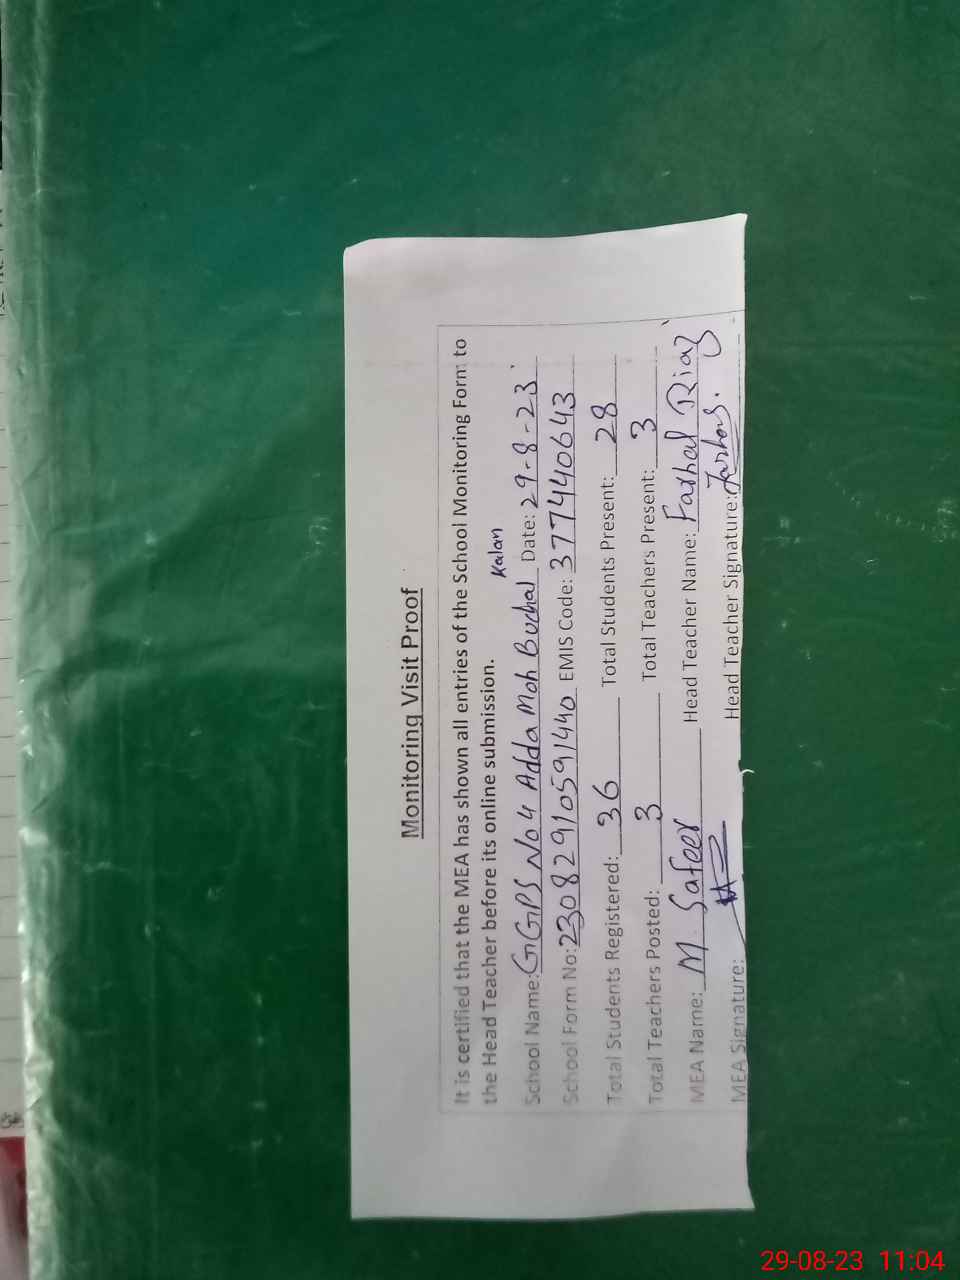 Monitoring Visit Proof
It is certified that the MEA has shown all entries of the School Monitoring Form to
the Head Teacher before its online submission.
Kalan
School Name: GGPS No 4 Adda Moh Buchal Date: 29-8-23
School Form No: 23082910591440 EMIS Code: 37744064 3
Total Students Registered: 36 Total Students Present: 28
Total Teachers Posted: 3 Total Teachers Present: 3
MEA Name: M. Safeer Head Teacher Name: Farhat Riaz
MEA Signature: Head Teacher Signature:
29-08-23 11:04